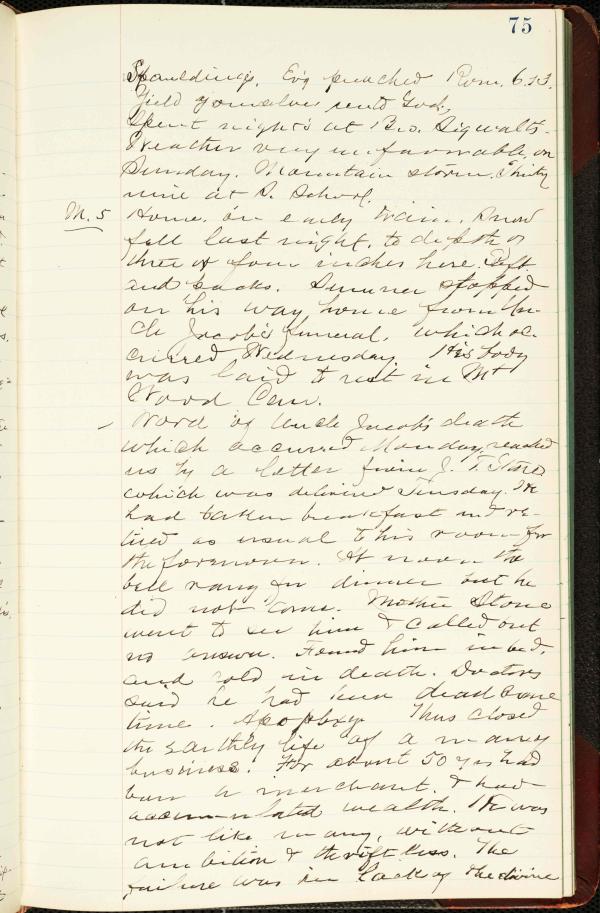 75
Spauldings. Ev'g preached Rom. 6.13.
Yield yourselves unto God.
Spent night at Bro. Sigwalts.
Weather very unfavorable, on
Sunday. Mountain storm. Thirty
nine at S. School.
M. 5 Home, on early train. Snow
fell last night, to depth of
three or four inches here.
and backs. Sumner stopped
on his way home from Un-
cle Jacob's funeral, which oc-
curred Wednesday. His body
was laid to rest in Mt
Wood Cem.
Word of Uncle Jacob's death
which occurred Monday, reached
us by a letter from J. T. Stone
which was delivered Tuesday. He
had taken breakfast and re-
tired as usual to his room for
the forenoon. At noon the
bell rang for dinner but he
did not come. Mother Stone
went to see him & called out
no answer. Found him in bed,
and cold in death. Doctors
said he had been dead some
time. Apoplexy Thus closed
the earthly life of a man of
business. For about 50 yrs had
been a merchant, & had
accumulated wealth. He was
not like many, without
ambition & thriftless. The
failure was in lack of the divine